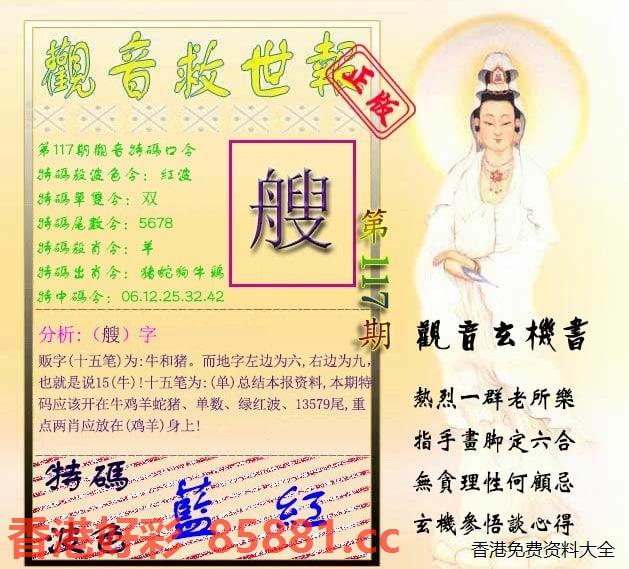 觀音救世報
正版
第117期觀音特碼口令
特碼殺波色令：紅波
特碼單雙令：双
特碼尾數令：5678
特碼殺肖令：羊
特碼出肖令：猪蛇狗牛鷄
特中碼令：06.12.25.32.42
艘
第117期
分析:（艘）字
贩字(十五笔)为:牛和猪。而地字左边为六,右边为九,
也就是说15(牛)!十五笔为:(单)总结本报资料,本期特
码应该开在牛鸡羊蛇猪、单数、绿红波、13579尾,重
点两肖应放在(鸡羊)身上!
特碼
波色
藍 紅
觀音玄機書
熱烈一群老所樂
指手畫脚定六合
無貪理性何顧忌
玄機參悟談心得
香港好彩 85881.cc
香港免费资料大全